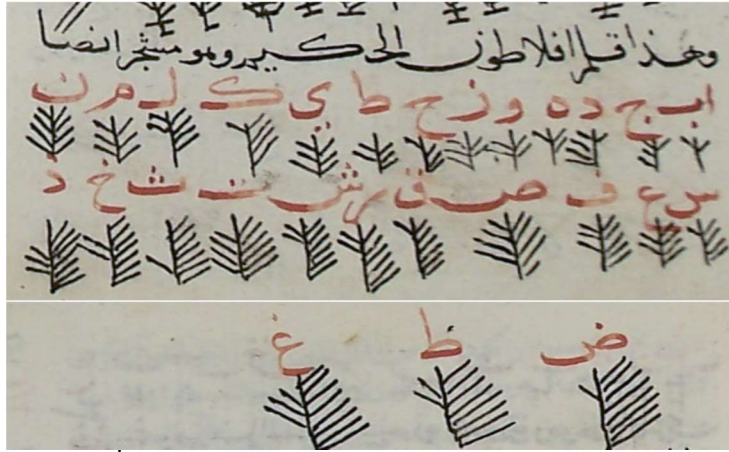 وهذا قلم افلاطون الحكيم وهو مشجر ايضا
ا ب ج د ه و ز ح ط ي ك ل م ن
س ع ف ص ق ر ش ت ث خ ذ
ض ظ غ